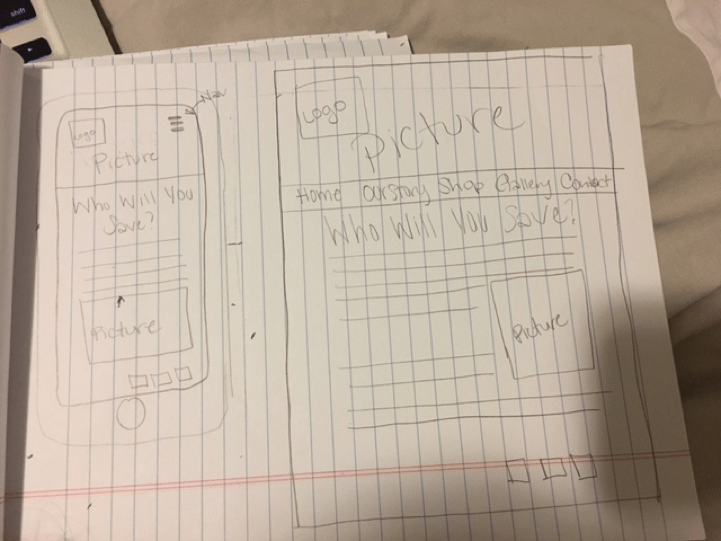 shift
Nav
Logo
Picture
Who Will You
Save?
Picture
Logo
Picture
Home Our Story Shop Gallery Contact
Who Will You Save?
Picture